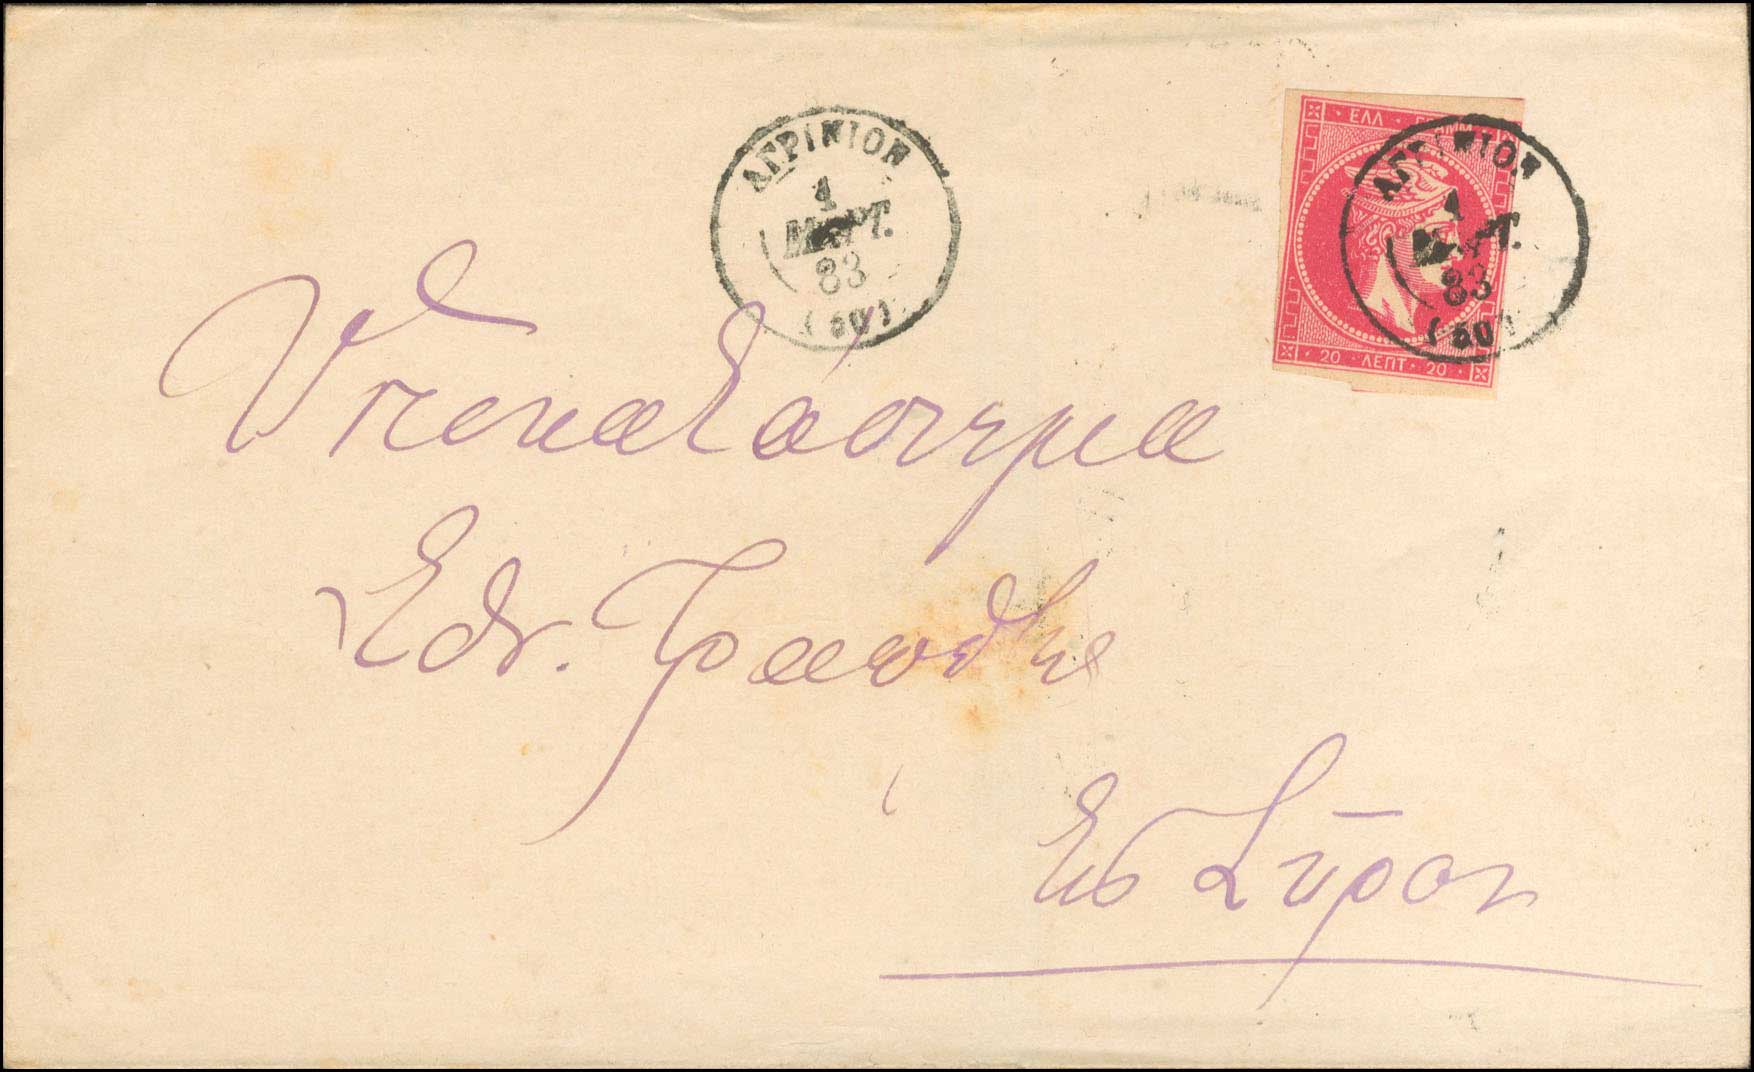 ΑΓΡΙΝΙΟΝ
1
ΜΑΡΤ.
83
(50)
ΕΛΛ · ΓΡΑΜΜ
ΑΓΡΙΝΙΟΝ
1
ΜΑΡΤ.
83
(50)
20 · ΛΕΠΤ · 20
Υποκατάστημα
Εθν. Τραπέζης
Εις Σύρον